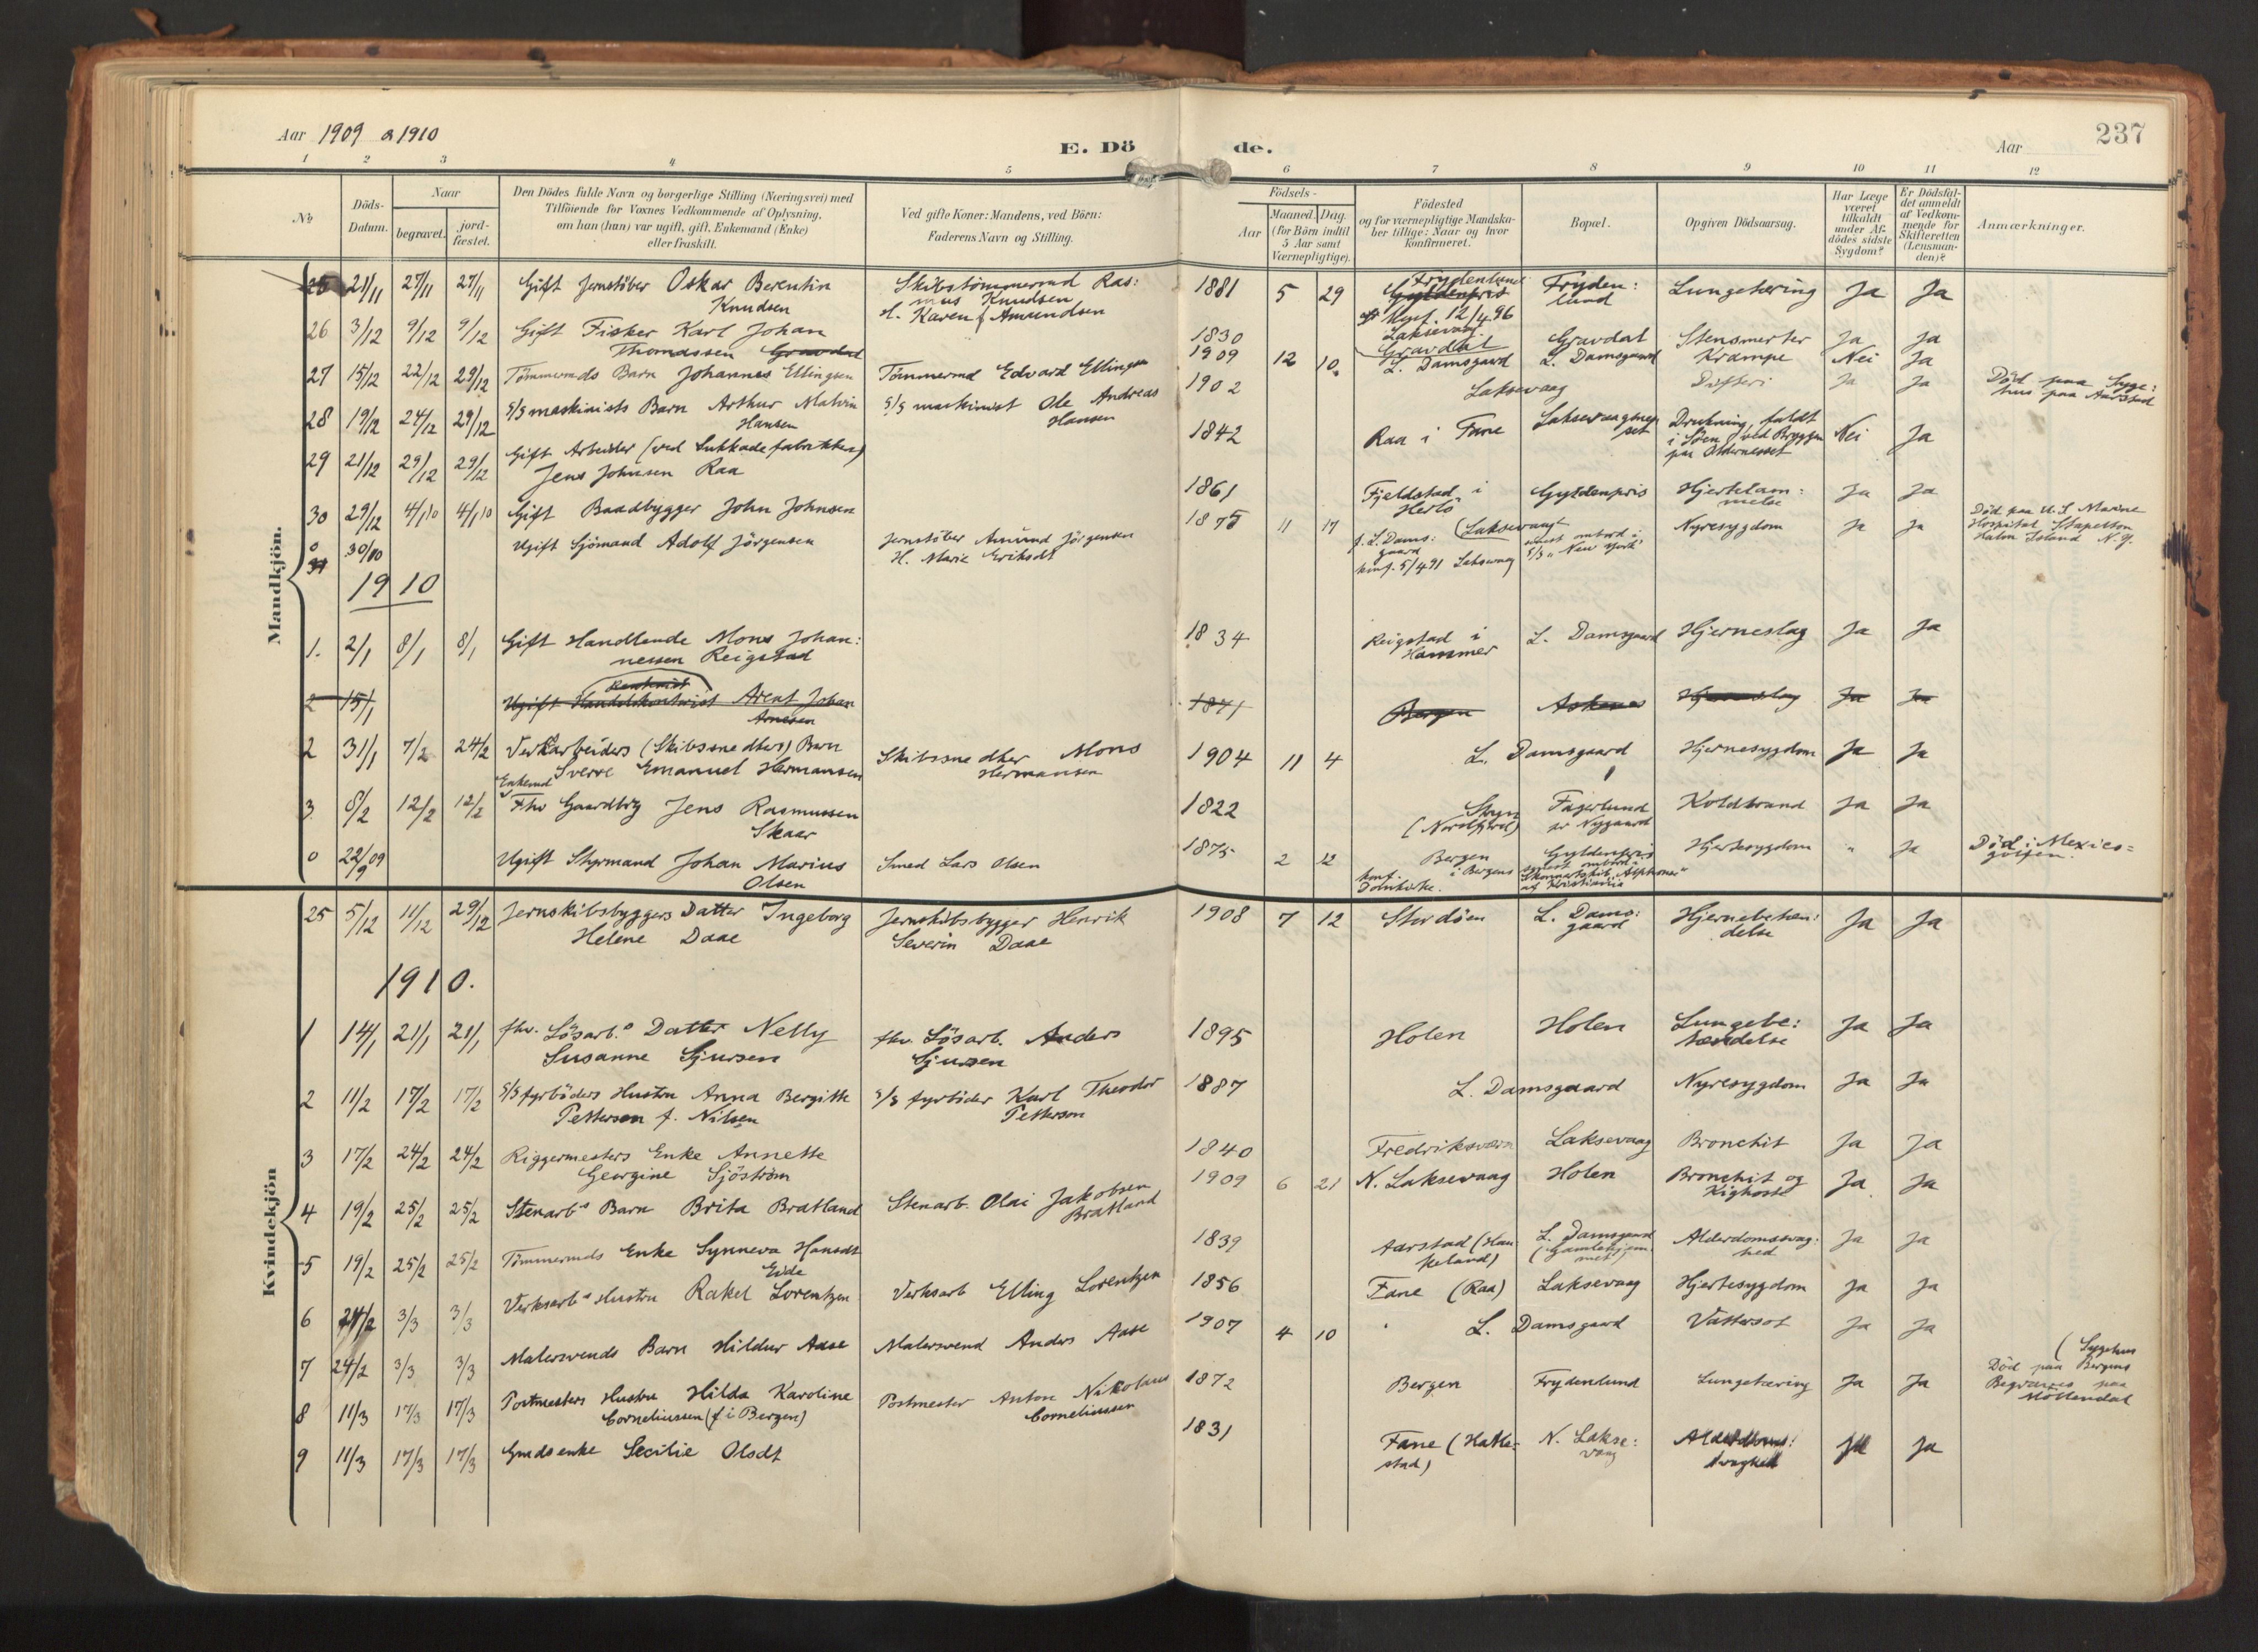 Aar 1909 & 1910
E. Dö de.
Aar
237
1 2 3 4 5 6 7 8 9 10 11 12
No
Döds-
Datum.
Naar
begravet.
jord-
fæstet.
Den Dödes fulde Navn og borgerlige Stilling (Næringsvei) med
Tilföiende for Voxnes Vedkommende af Oplysning,
om han (hun) var ugift, gift, Enkemand (Enke)
eller fraskilt.
Ved gifte Koner: Mandens, ved Börn:
Faderens Navn og Stilling.
Födsels-
Aar
Maaned. Dag.
(for Börn indtil
5 Aar samt
Værnepligtige).
Födested
og for værnepligtige Mandska-
ber tillige: Naar og hvor
konfirmeret.
Bopæl.
Opgiven Dödsaarsag.
Har Læge
været
tilkaldt
under Af-
dödes sidste
Sygdom?
Er Dödsfal-
det anmeldt
af Vedkom-
mende for
Skifteretten
(Lensman-
den)?
Anmærkninger.
Mandkjön.
25 21/11 27/11 27/11 Gift Jernstöber Oskar Berentin
Knudsen
Skibstömmermd Ras:
mus Knudsen
H. Karen f. Amundsen
1881 5 29
Frydenlund
Gyldenpris
Konf. 12/4 96
Laksevaag
Fryden:
lund
Lungetæring Ja Ja
26 3/12 9/12 9/12 Gift Fisker Karl Johan
Thomassen Gravdal
1830 Gravdal Gravdal Stensmerter Ja Ja
27 15/12 22/12 29/12 Tömmermds Barn Johannes Ellingsen
Tömmermd Edvard Ellingsen
1909 12 10 L. Damsgaard L. Damsgaard Krampe Nei Ja
28 19/12 24/12 29/12 S/S maskinists Barn Arthur Malvin
Hansen
S/S maskinist Ole Andreas
Hansen
1902 Laksevaag Difteri Ja Ja
Död paa Syge:
hus paa Aarstad
29 21/12 29/12 29/12 Gift Arbeider (ved Sukkadefabrikken)
Jens Johnsen Raa
1842 Raa i Fane Laksevaagnes
set
Drukning, faldt
i Söen ved Bryggen
paa Oldernesset
Nei Ja
30 29/12 4/1 10 4/1 10 Gift Baadbygger John Johnsen
1861 Fjeldstad i
Herlö
Gyldenpris Hjertelam:
melse
Ja Ja
0 30/10 Ugift Sjömand Adolf Jörgensen
31
Jernstöber Amund Jörgensen
H. Marie Eriksdt
1875 11 17
f. L. Dams:
gaard
konf. 5/4 91 Laksevaag
(Laksevaag
senest ombord i
S/S "New York"
Nyresygdom Ja Ja
Död paa U. S Marine
Hospital Stapelton
Haton Island N. Y.
1910
1. 2/1 8/1 8/1 Gift Handlende Mons Johan:
nessen Reigstad
1834 Reigstad i
Hammer
L. Damsgaard Hjerneslag Ja Ja
2 15/1
Ugift Handelskontorist Arent Johan
Arnesen
1871 Bergen Askenes Hjerneslag Ja Ja
2 31/1 7/2 24/2 Verksarbeiders (Skibssnedkers) Barn
Sverre Emanuel Hermansen
Skibssnedker Mons
Hermansen
1904 11 4 L. Damsgaard Hjernesygdom Ja Ja
3 8/2 12/2 12/2
Enkemd
Fhv Gaardbrg Jens Rasmussen
Skaar
1822 Stryn
(Nordfjord)
Fagerlund
pr Nygaard
Koldbrand Ja Ja
0 22/9 09 Ugift Styrmand Johan Marius
Olsen
Smed Lars Olsen
1875 2 12 Bergen
konf. i Bergens
Domkirke.
Gyldenpris
senest ombord i
Skonnertskib "Alphonse"
af Kristiania
Hjertesygdom " Ja
Död i Mexico=
golfen.
Kvindekjön
25 5/12 11/12 29/12 Jernskibsbyggers Datter Ingeborg
Helene Daae
Jernskibsbygger Henrik
Severin Daae
1908 7 12 Stordöen L. Dams:
gaard
Hjernebetæn:
delse
Ja Ja
1910.
1 14/1 21/1 21/1 fhv. Lösarb.s Datter Nelly
Susanne Sjursen
fhv. Lösarb. Anders
Sjursen
1895 Holen Holen Lungebe:
tændelse
Ja Ja
2 11/2 17/2 17/2 S/S fyrböders Hustru Anna Bergitte
Petterson f. Nilsen
S/S fyrböder Karl Theodor
Petterson
1887 L. Damsgaard Nyresygdom Ja Ja
3 17/2 24/2 24/2 Riggermesters Enke Annette
Georgine Sjöström
1840 Fredriksværn Laksevaag Bronchit Ja Ja
4 19/2 25/2 25/2 Stenarbs Barn Brita Bratland
Stenarb. Olai Jakobsen
Bratland
1909 6 21 N. Laksevaag Holen Bronchit og
Kighoste
Ja Ja
5 19/2 25/2 25/2 Tömmermds Enke Synneva Hansdt
Eide
1839 Aarstad (Hau
keland)
L. Damsgaard
(Gamlehjem
met)
Alderdomssvag:
hed
Ja Ja
6 24/2 3/3 3/3 Verksarbs Hustru Rakel Lorentzen
Verksarb Elling Lorentzen
1856 Fane (Raa) Laksevaag Hjertesygdom Ja Ja
7 24/2 3/3 3/3 Malersvends Barn Hildur Aase
Malersvend Anders Aase
1907 4 10 L. Damsgaard Vattersot Ja Ja
8 11/3 17/3 17/3 Postmesters Hustru Hilda Karoline
Corneliussen (f. i Bergen)
Postmester Anton Nikolaus
Corneliussen
1872 Bergen Frydenlund Lungetæring Ja Ja
(Sygehus
Död paa Bergens
Begraves paa
Möllendal
9 11/3 17/3 17/3 Gmdsenke Secilie Olsdt
1831 Fane (Hatle:
stad)
N. Lakse:
vaag
Alderdoms:
svaghed
Ja Ja